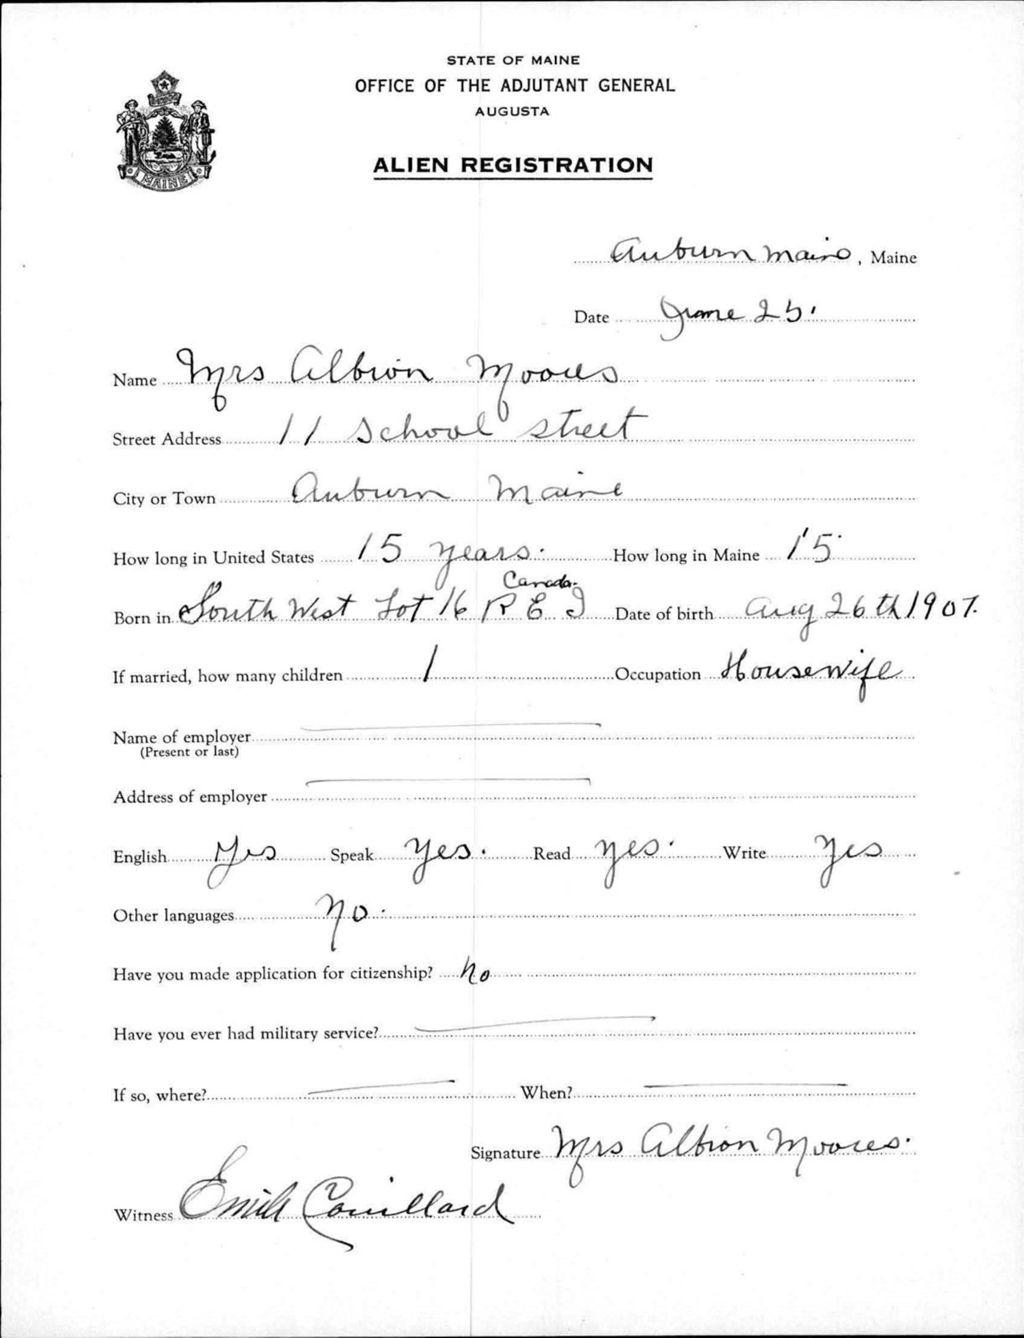 STATE OF MAINE
OFFICE OF THE ADJUTANT GENERAL
AUGUSTA
ALIEN REGISTRATION
MAINE
Auburn Maine, Maine
Date June 25.
Name Mrs Albion Moores
Street Address 11 School street
City or Town Auburn Maine
How long in United States 15 years. How long in Maine 15
Canada.
Born in South West Lot 16 P E I Date of birth Aug 26th 1907.
If married, how many children 1 Occupation Housewife
Name of employer
(Present or last)
Address of employer
English Yes Speak Yes. Read Yes. Write Yes
Other languages No.
Have you made application for citizenship? No
Have you ever had military service?
If so, where? When?
Signature Mrs Albion Moores.
Witness Emile Couillard